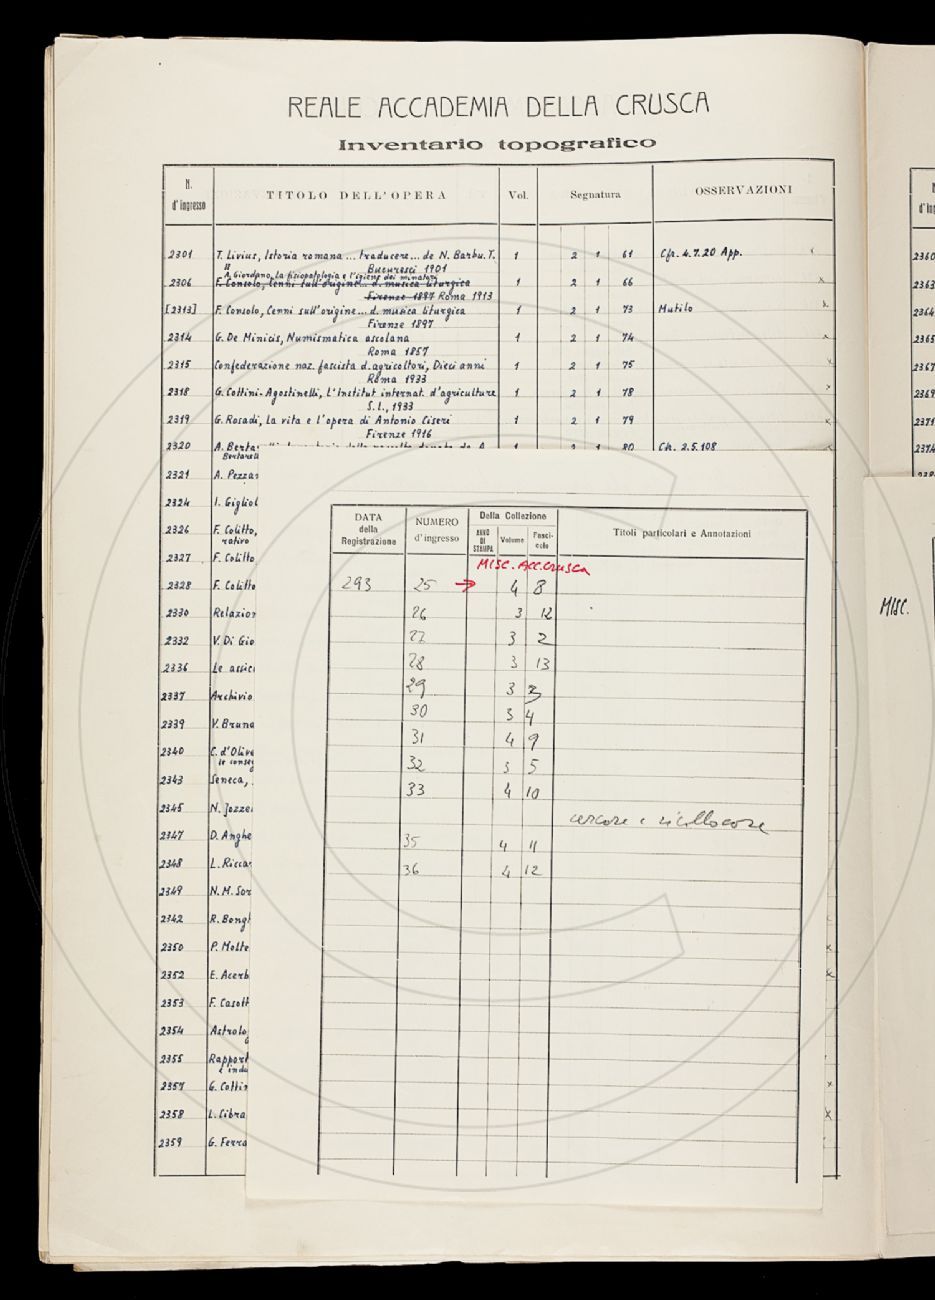 REALE ACCADEMIA DELLA CRUSCA
Inventario topografico
N. d'ingresso TITOLO DELL'OPERA Vol. Segnatura OSSERVAZIONI
2301 T. Livius, Istoria romana... traducere... de N. Barbu. T. 1 2 1 61 Cfr. 4.7.20 App.
II Bucuresci 1901
A. Giordano, La fisiopatologia e l'igiene dei minatori
2306 F. Consolo, Cenni sull'origine... d. musica liturgica 1 2 1 66
Firenze 1897 Roma 1913
[2313] F. Consolo, Cenni sull'origine... d. musica liturgica 1 2 1 73 Mutilo
Firenze 1897
2314 G. De Minicis, Numismatica ascolana 1 2 1 74
Roma 1857
2315 Confederazione naz. fascista d. agricoltori, Dieci anni 1 2 1 75
Roma 1933
2318 G. Cottini-Agostinelli, L'Institut internat. d'agriculture 1 2 1 78
S.l., 1933
2319 G. Rosadi, La vita e l'opera di Antonio Ciseri 1 2 1 79
Firenze 1916
2320 A. Berta 1 2 1 80 Cfr. 2.5.108
Bertarell
2321 A. Pezza
2324 I. Gigliol
2326 F. Colitto,
rativo
2327 F. Colitto
2328 F. Colitto
2330 Relazion
2332 V. Di Gio
2336 Le assic
2337 Archivio
2339 V. Bruna
2340 C. d'Olive
le conseg
2343 Seneca,
2345 N. Jozze
2347 D. Anghe
2348 L. Ricca
2349 N. M. Sor
2342 R. Bongh
2350 P. Molte
2352 E. Acerb
2353 F. Casott
2354 Astrolo
2355 Rapport
e inda
2357 G. Cottin
2358 L. Cibra
2359 G. Ferra
DATA della Registrazione NUMERO d'ingresso Della Collezione Titoli particolari e Annotazioni
ANNO DI STAMPA Volume Fascicolo
MISC. ACC. CRUSCA
293 25 → 4 8
26 3 12
27 3 2
28 3 13
29 3 3
30 3 4
31 4 9
32 3 5
33 4 10
cercare e ricollocare
35 4 11
36 4 12
2360
2363
2364
2365
2367
2369
2371
2374
MISC.